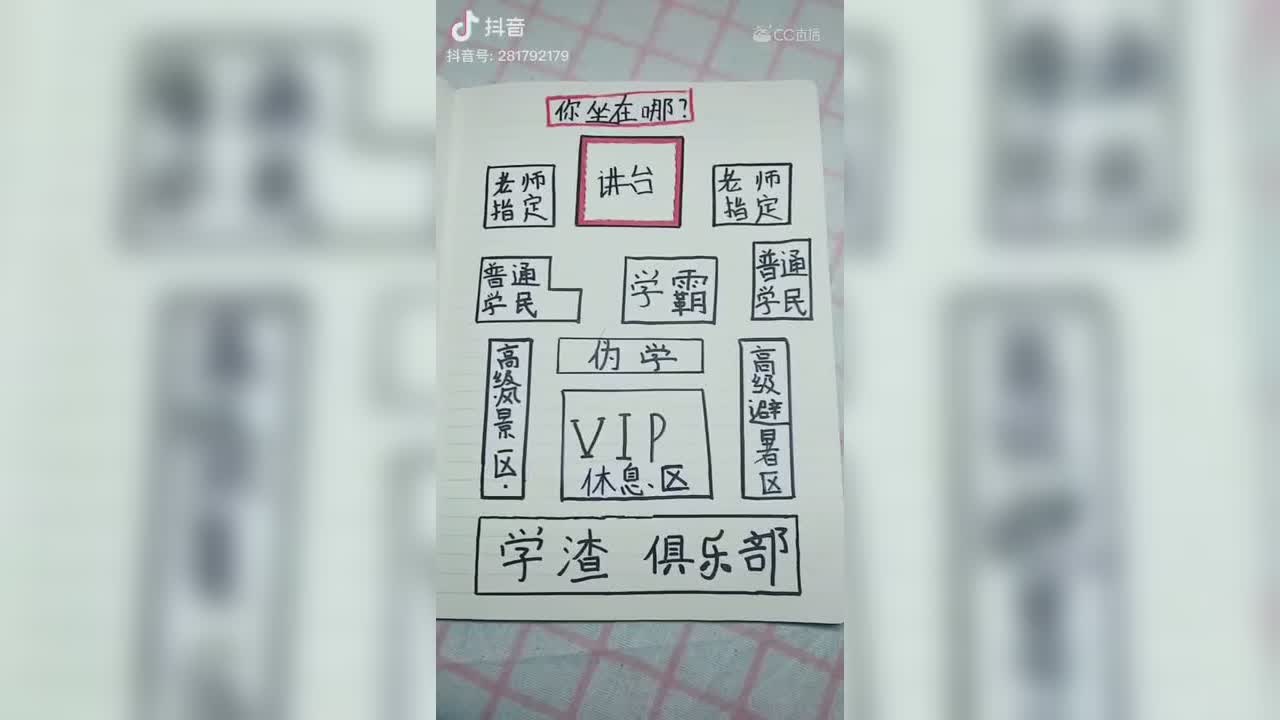 抖音
抖音号: 281792179
CC直播
你坐在哪?
讲台
老师
指定
老师
指定
普通
学民
学霸
普通
学民
伪学
高级风景区
VIP
休息区
高级避暑区
学渣 俱乐部